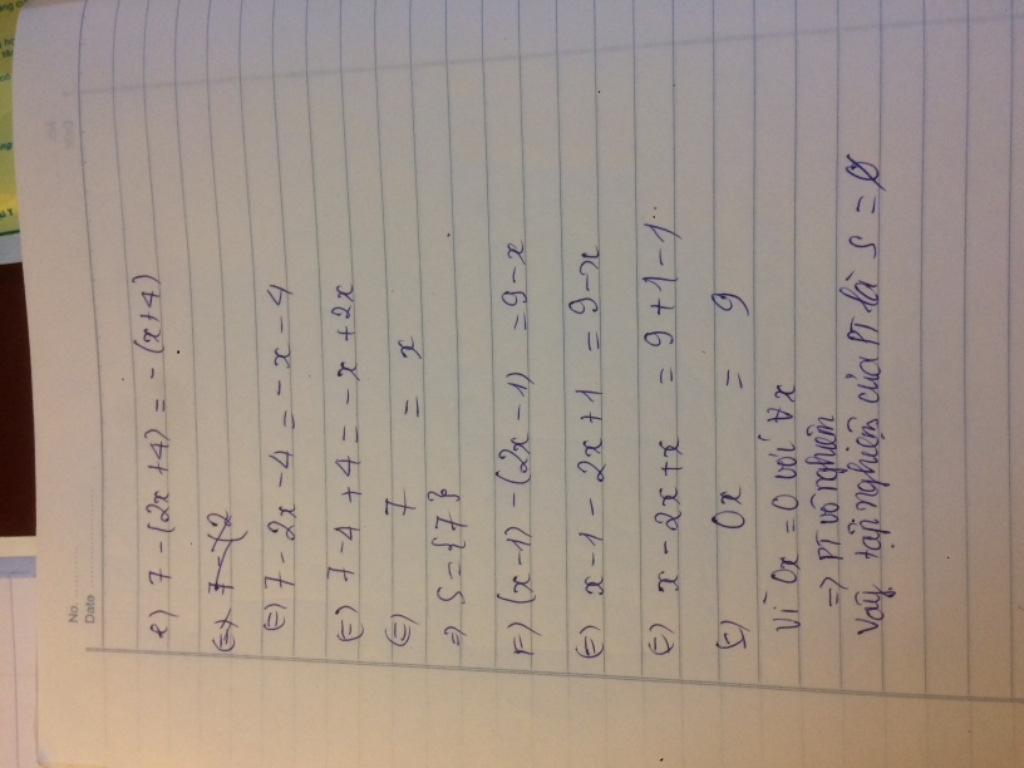 No. ............
Date ............
e) 7 - (2x + 4) = - (x + 4)
(=) 7 - (2
(=) 7 - 2x - 4 = - x - 4
(=) 7 - 4 + 4 = - x + 2x
(=) 7 = x
=) S = {7}
F) (x - 1) - (2x - 1) = 9 - x
(=) x - 1 - 2x + 1 = 9 - x
(=) x - 2x + x = 9 + 1 - 1
(=) 0x = 9
Vì 0x = 0 với ∀x
=) PT vô nghiệm
Vậy tập nghiệm của PT là S = ∅